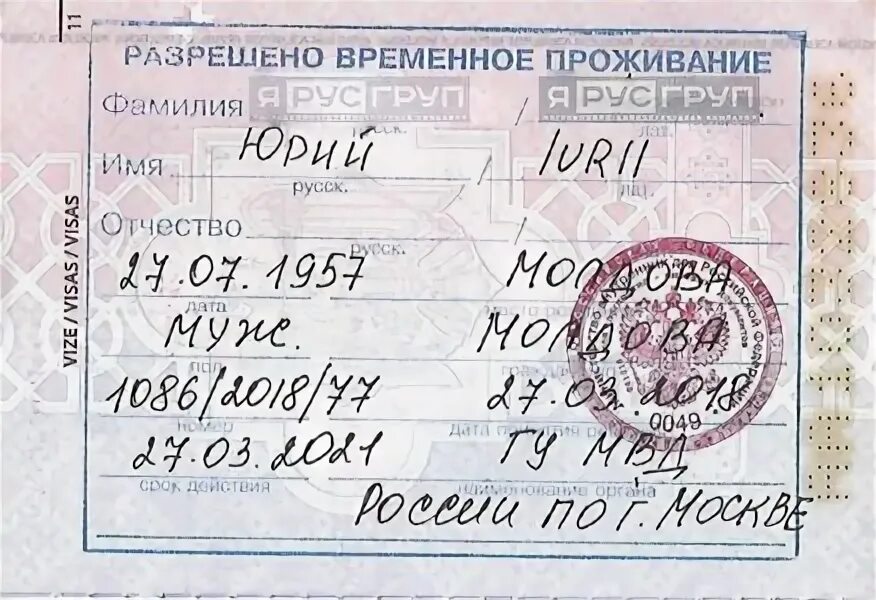 11
РАЗРЕШЕНО ВРЕМЕННОЕ ПРОЖИВАНИЕ
Фамилия Я РУС ГРУП / Я РУС ГРУП
русск. лат.
Имя ЮРИЙ / IURII
русск. лат.
Отчество /
русск.
27.07.1957 МОЛДОВА
дата
МУЖ. МОЛДОВА
пол
1086/2018/77 27.03.2018
номер дата принятия
27.03.2021 ГУ МВД
срок действия наименование органа
РОССИИ ПО Г. МОСКВЕ
VIZE / VISAS / VISAS
0049